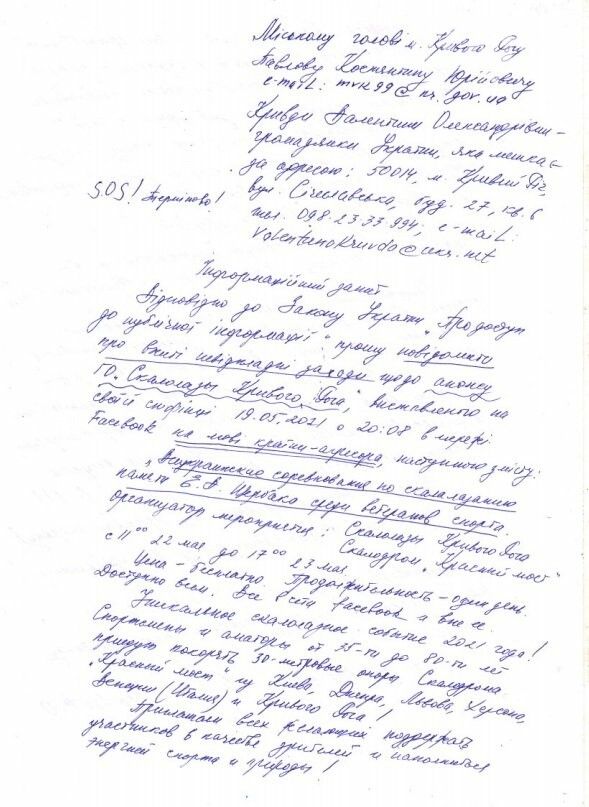 Міському голові м. Кривого Рогу
Павлову Костянтину Юрійовичу
e-mail: mvk99@kr.gov.ua
Кривди Валентини Олександрівни –
громадянки України, яка мешкає
за адресою: 50014, м. Кривий Ріг,
вул. Січеславська, буд. 27, кв. 6
S.O.S! Терміново!
тел. 098 23 33 994; e-mail:
valentinakruvda@ukr.net
Інформаційний запит
Відповідно до Закону України „Про доступ
до публічної інформації" прошу повідомити
про вжиті невідкладні заходи щодо анонсу
ГО „Скалолазы Кривого Рога", виставленого на
своїй сторінці 19.05.2021 о 20:08 в мережі
Facebook на мові країни-агресора, наступного змісту:
„Всеукраинские соревнования по скалолазанию
памяти В. Щербака среди ветеранов спорта.
организатор мероприятия: Скалолазы Кривого Рога
с 11 00 22 мая до 17 00 23 мая Скалодром „Красний мост"
Цена – бесплатно. Продолжительность – один день.
Доступно всем. Все в сети facebook и вне ее.
Уникальное скалолазное событие 2021 года!
Спортсмены и аматоры от 35-ти до 80-ти лет
приедут покорять 30-метровые опоры Скалодрома
„Красний мост" из Киева, Днепра, Львова, Херсона,
Венеции (Италия) и Кривого Рога!
Приглашаем всех желающих поддержать
участников в качестве зрителей и наполниться
энергией спорта и природы!